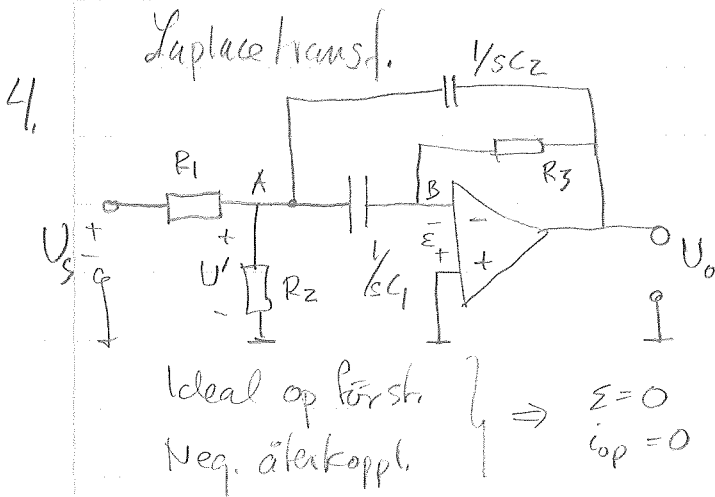 Laplacetransf.
4.
1/sC2
R3
R1
A
B
Us
+
-
+
U'
-
R2
1/sC1
-
ε
+
-
+
Uo
Ideal op först.
Neg. återkoppl.
} ⇒
ε=0
iop=0